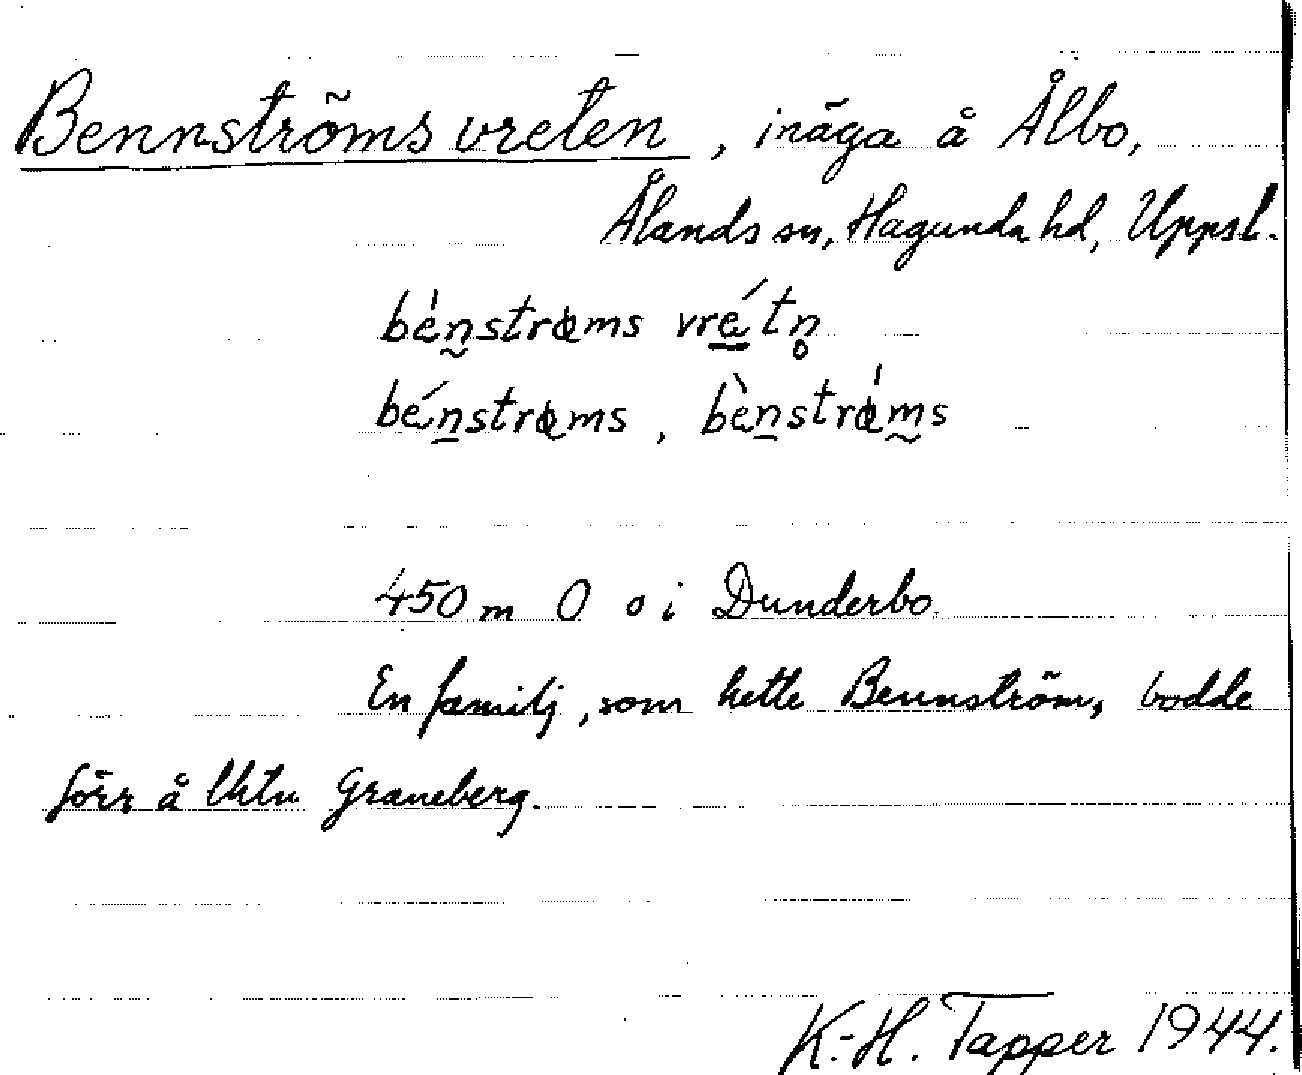 Bennströms vreten, inäga å Ålbo,
Ålands sn, Hagunda hd, Uppsl.
bènstrœms vrétn̥
bénstrœms, bènstrœ̀ms
450 m O o i Dunderbo.
En familj, som hette Bennström, bodde
förr å Uktu Graneberg.
K.-H. Tapper 1944.